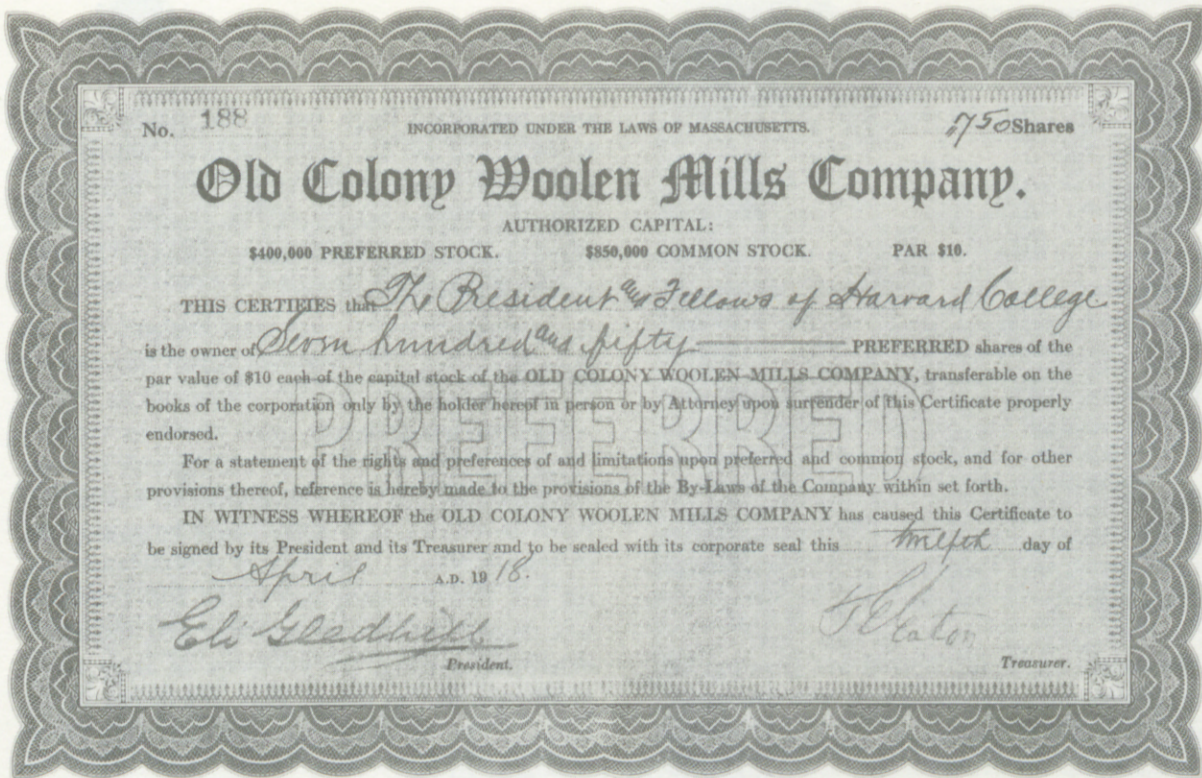 No. 188 INCORPORATED UNDER THE LAWS OF MASSACHUSETTS. 750 Shares
Old Colony Woolen Mills Company.
AUTHORIZED CAPITAL:
$400,000 PREFERRED STOCK. $850,000 COMMON STOCK. PAR $10.
THIS CERTIFIES that The President and Fellows of Harvard College
is the owner of Seven hundred and fifty PREFERRED shares of the
par value of $10 each of the capital stock of the OLD COLONY WOOLEN MILLS COMPANY, transferable on the
books of the corporation only by the holder hereof in person or by Attorney upon surrender of this Certificate properly
endorsed.
PREFERRED
For a statement of the rights and preferences of and limitations upon preferred and common stock, and for other
provisions thereof, reference is hereby made to the provisions of the By-Laws of the Company within set forth.
IN WITNESS WHEREOF the OLD COLONY WOOLEN MILLS COMPANY has caused this Certificate to
be signed by its President and its Treasurer and to be sealed with its corporate seal this twelfth day of
April A.D. 19 18.
Eli Gledhill Eaton
President. Treasurer.